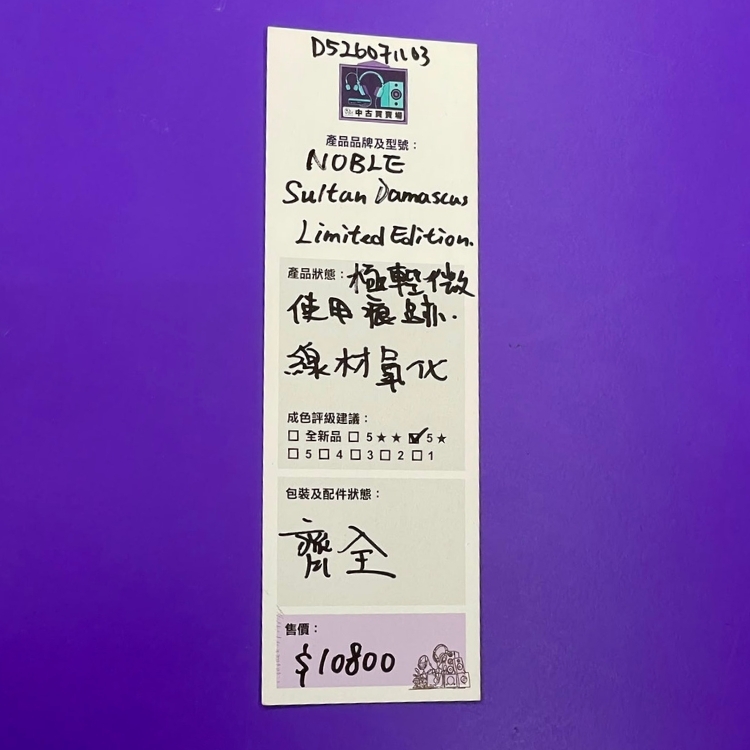 D526071103
中古買賣場
產品品牌及型號：
NOBLE
Sultan Damascus
Limited Edition.
產品狀態：極輕微
使用痕跡．
線材氧化
成色評級建議：
☐ 全新品 ☐ 5★★ ☑ 5★
☐ 5 ☐ 4 ☐ 3 ☐ 2 ☐ 1
包裝及配件狀態：
齊全
售價：
$10800